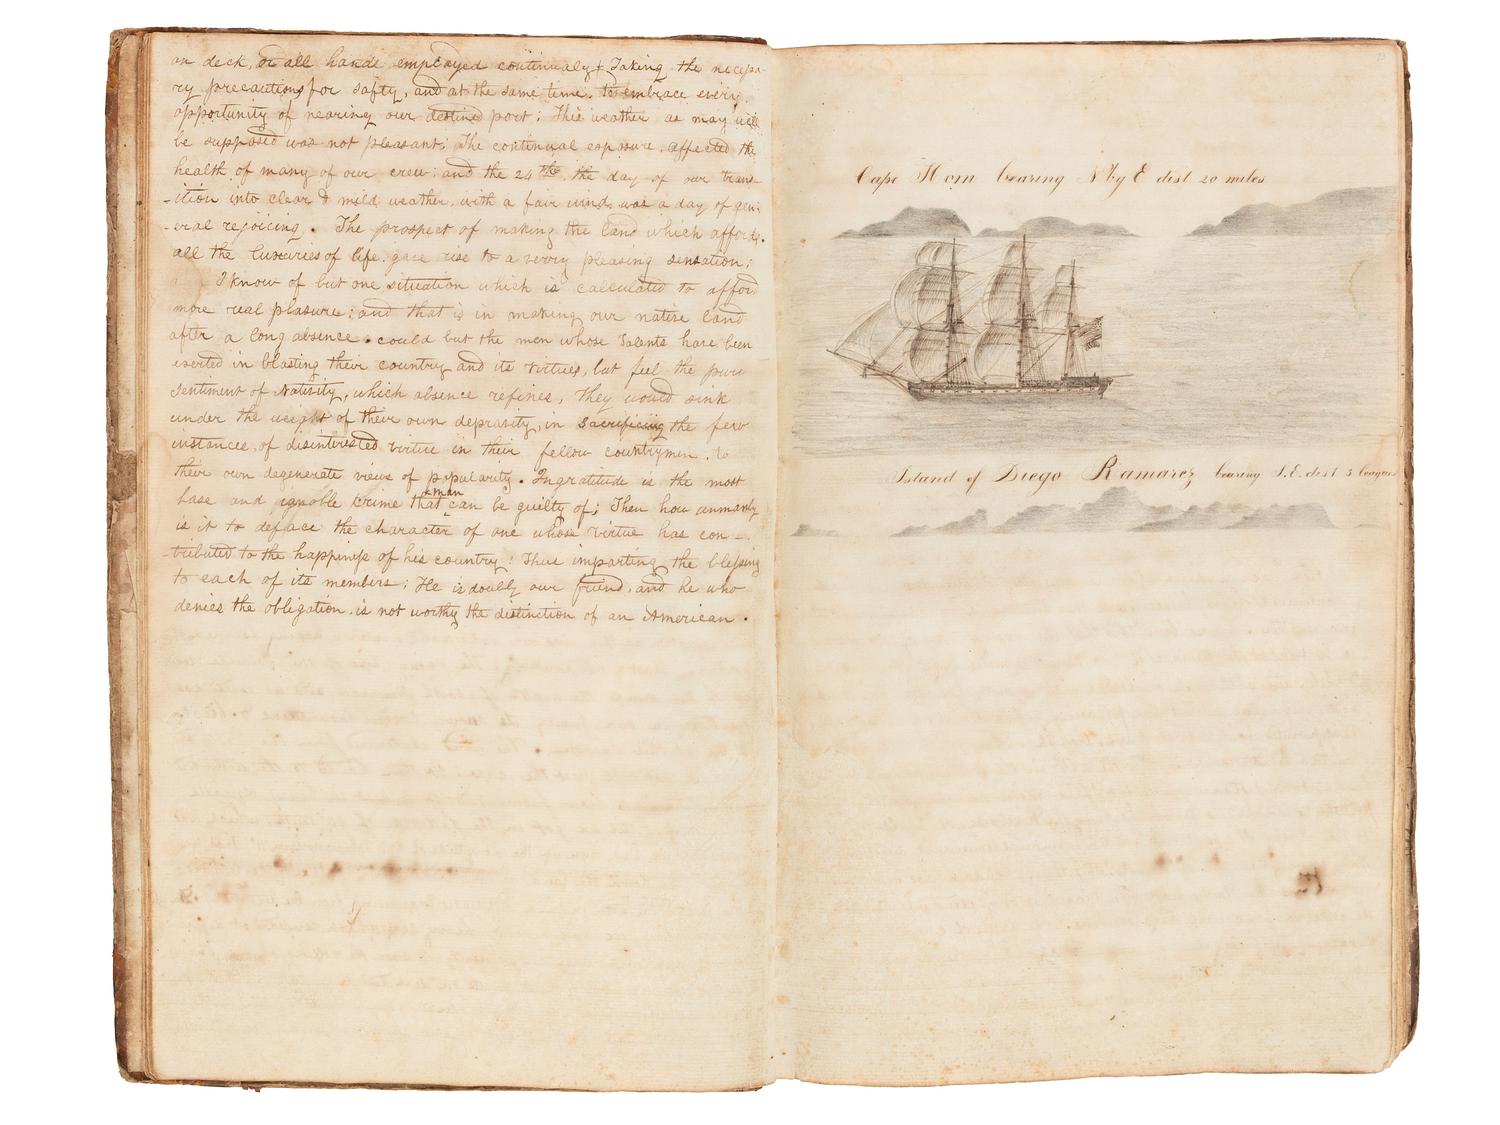 on deck, or all hands employed continualy & Taking the necessa-
ry precautions for safty, and at the same time. to embrace every
opportunity of nearing our destined port: This weather as may well
be supposed was not pleasant; The continual exposure. affected the
health of many of our crew: and the 24th. the day of our trans-
-ition into clear & mild weather. with a fair wind. was a day of gen-
-eral rejoicing. The prospect of making the land which affords.
all the luxuries of life. gave rise to a very pleasing sensation;
I know of but one situation which is calculated to afford
more real plasure: and that is in making our native land
after a long absence. could but the men whose Talents have been
exerted in blasting their country and its virtues, but feel the pure
sentiment of Nativity, which absence refines, They would sink
under the weight of their own depravity, in Sacrificing the few
instances, of disinterested virtue in their fellow countrymen. to
their own degenerate views of popularity. Ingratitude is the most
base and ignoble crime that a man can be guilty of; Then how unmanly
is it to deface the character of one whose virtue has con-
-tributed to the happiness of his country! Thus imparting the blessing
to each of its members; He is doubly our friend, and he who
denies the obligation. is not worthy the distinction of an American.
Cape Horn bearing N by E dist 20 miles
Island of Diego Ramarez bearing S.E. dist 3 leagues